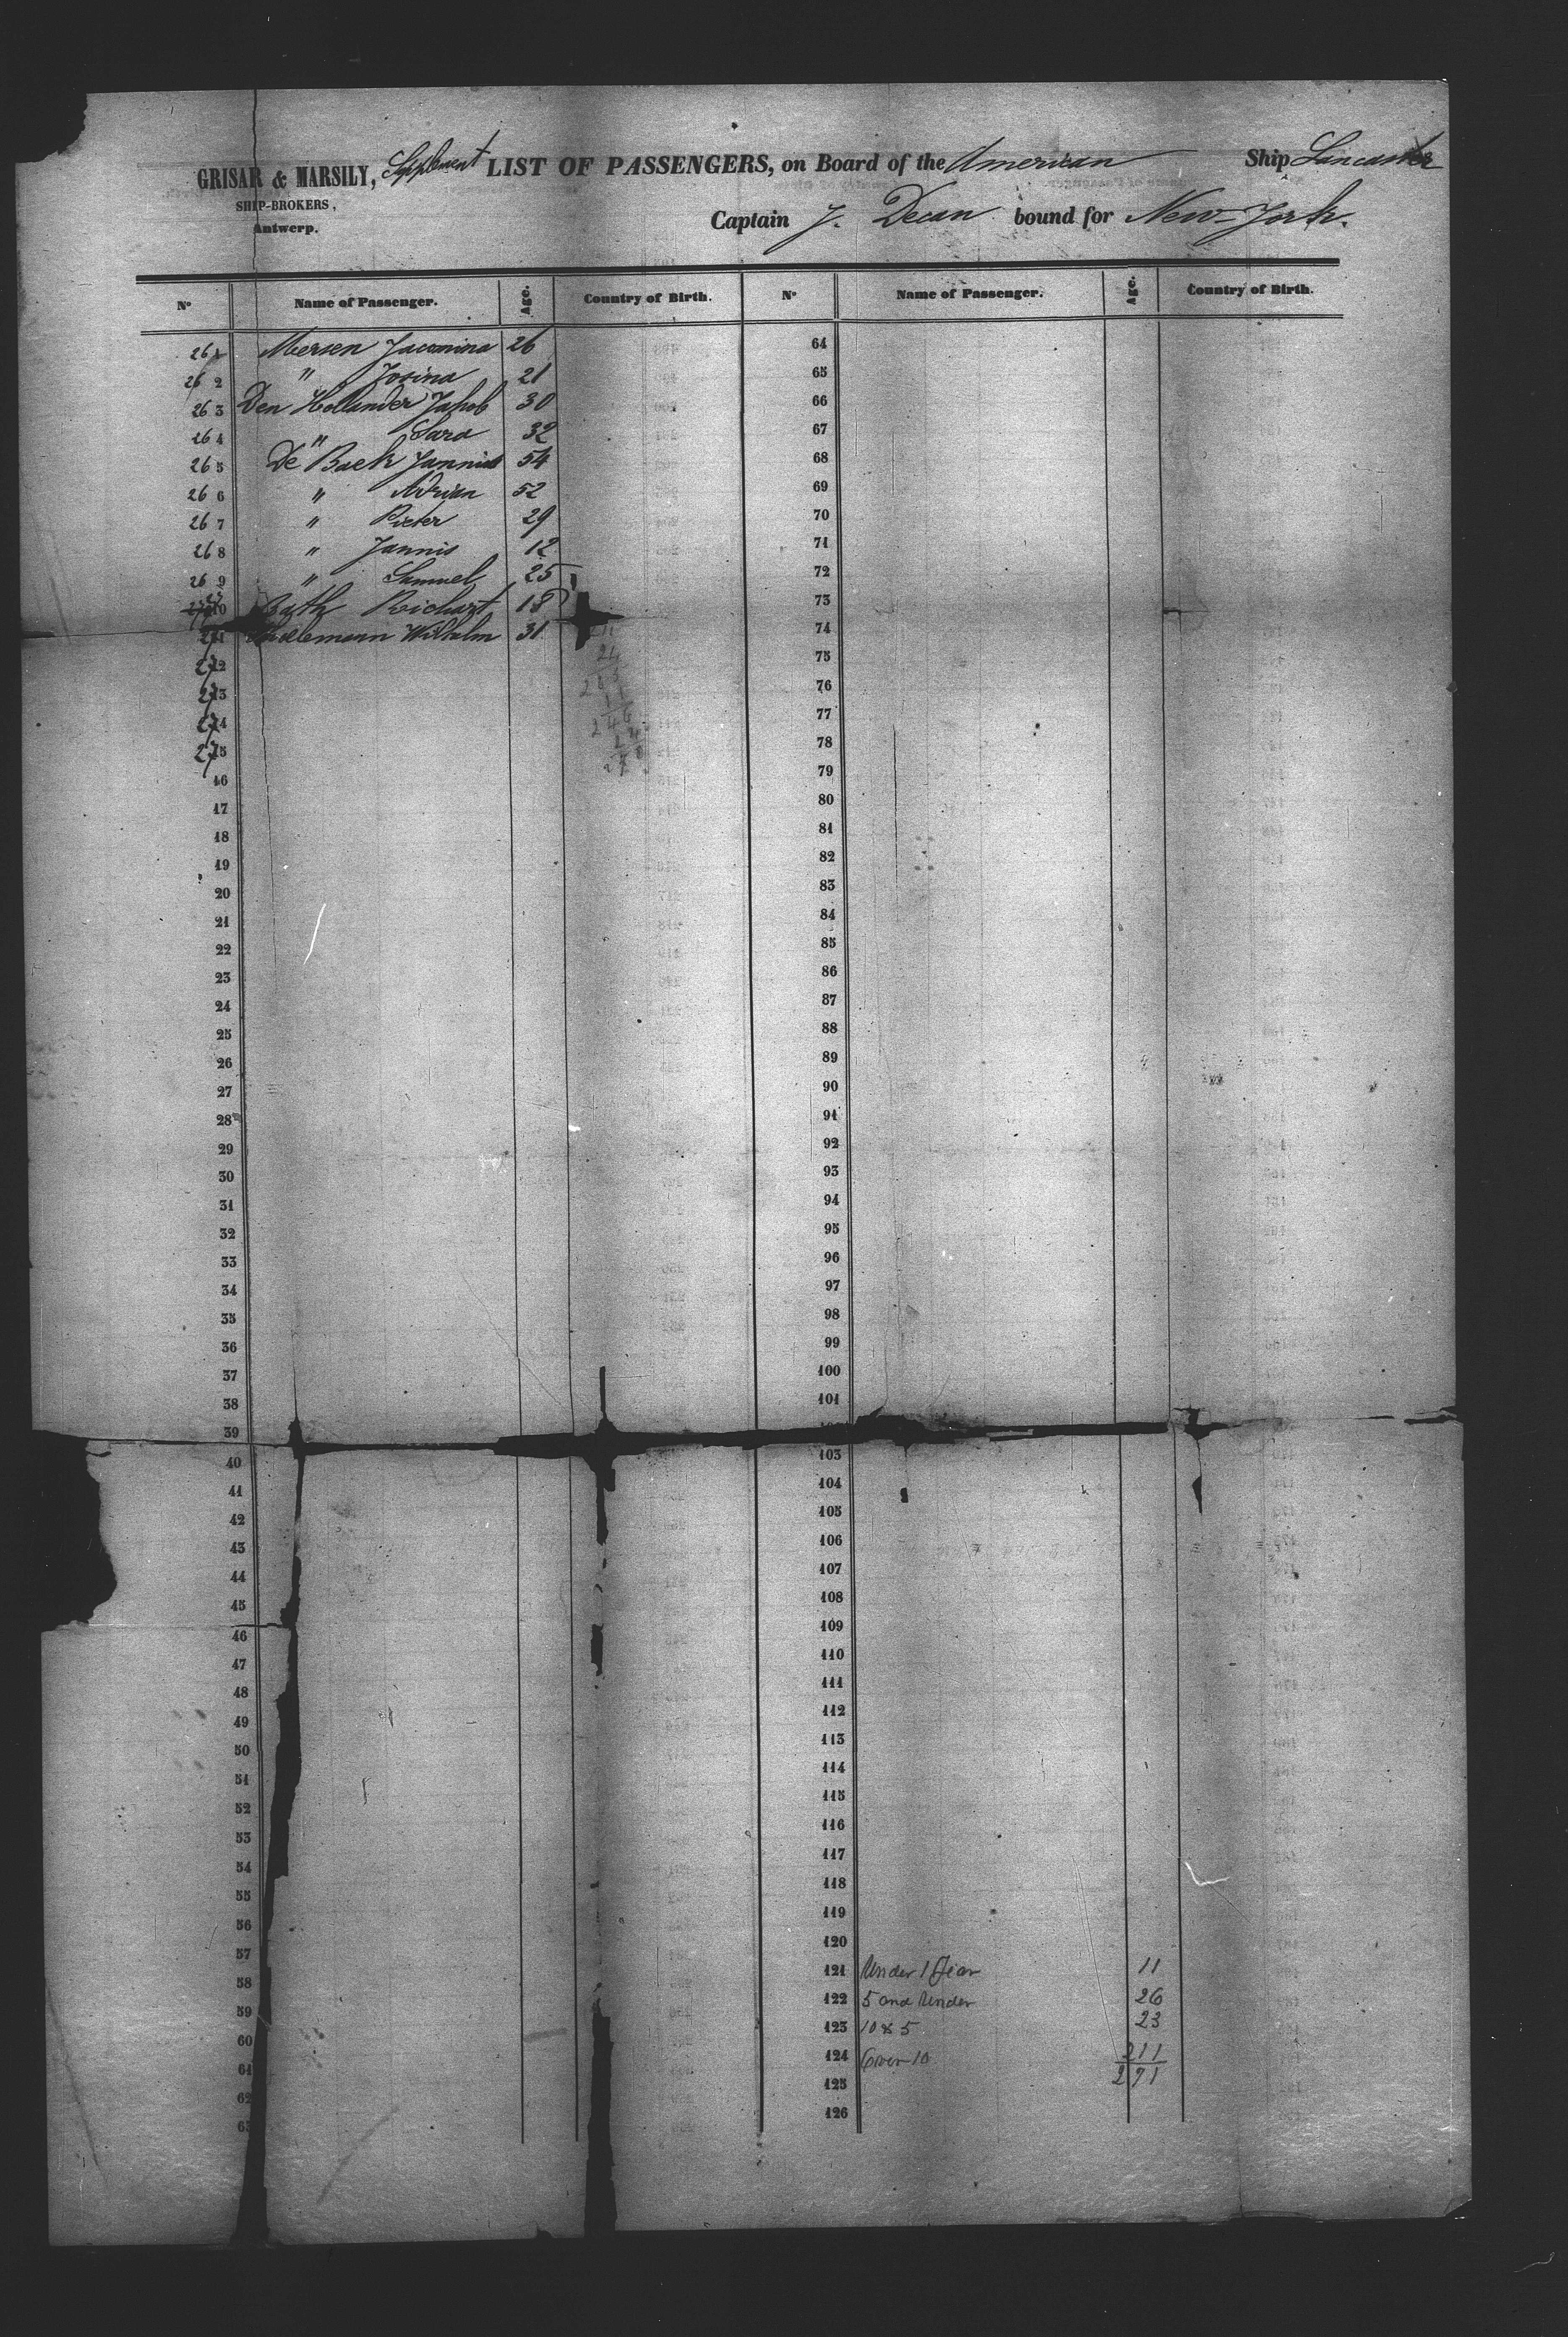 GRISAR & MARSILY, Supplement LIST OF PASSENGERS, on Board of the American Ship Lancaster
SHIP-BROKERS,
Antwerp.
Captain J. Decan bound for New-York.
N° Name of Passenger. Age. Country of Birth. N° Name of Passenger. Age. Country of Birth.
261 Mersen Jacomina 26 64
262 " Josina 21 65
263 Den Hollander Jakob 30 66
264 " Sara 32 67
265 De Baek Jannis 54 68
266 " Adrian 52 69
267 " Pieter 29 70
268 " Jannis 12 71
269 " Samuel 25 72
10 Bath Richart 18 73
271 Wilhelm 31 74
272 75
273 76
274 77
275 78
16 79
17 80
18 81
19 82
20 83
21 84
22 85
23 86
24 87
25 88
26 89
27 90
28 91
29 92
30 93
31 94
32 95
33 96
34 97
35 98
36 99
37 100
38 101
39
40 103
41 104
42 105
43 106
44 107
45 108
46 109
47 110
48 111
49 112
50 113
51 114
52 115
53 116
54 117
55 118
56 119
57 120
58 121 Under 1 Year 11
59 122 5 and Under 26
60 123 10 & 5 23
61 124 Over 10 211
62 125 271
63 126